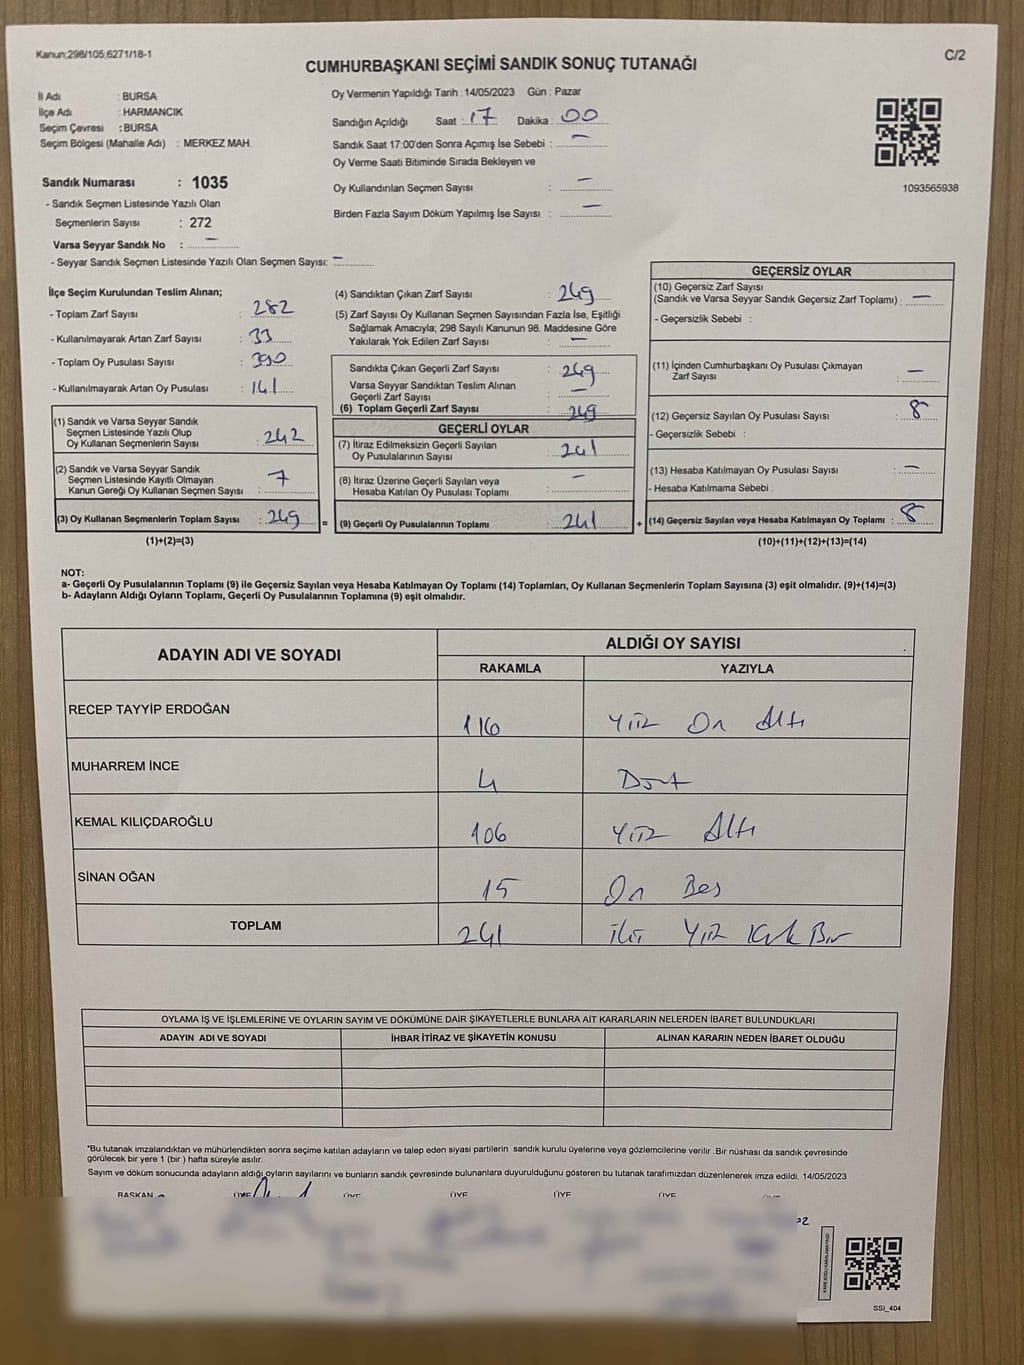 Kanun;298/105;6271/18-1
C/2
CUMHURBAŞKANI SEÇİMİ SANDIK SONUÇ TUTANAĞI
İl Adı : BURSA
İlçe Adı : HARMANCIK
Seçim Çevresi : BURSA
Seçim Bölgesi (Mahalle Adı) : MERKEZ MAH.
Oy Vermenin Yapıldığı Tarih :14/05/2023 Gün : Pazar
Sandığın Açıldığı Saat : 17 Dakika : 00
Sandık Saat 17:00'den Sonra Açımış İse Sebebi : —
Oy Verme Saati Bitiminde Sırada Bekleyen ve
Oy Kullandırılan Seçmen Sayısı : —
Birden Fazla Sayım Döküm Yapılmış İse Sayısı : —
1093565938
Sandık Numarası : 1035
- Sandık Seçmen Listesinde Yazılı Olan
Seçmenlerin Sayısı : 272
Varsa Seyyar Sandık No : —
- Seyyar Sandık Seçmen Listesinde Yazılı Olan Seçmen Sayısı: —
İlçe Seçim Kurulundan Teslim Alınan;
- Toplam Zarf Sayısı : 282
- Kullanılmayarak Artan Zarf Sayısı : 33
- Toplam Oy Pusulası Sayısı : 390
- Kullanılmayarak Artan Oy Pusulası : 141
(1) Sandık ve Varsa Seyyar Sandık
Seçmen Listesinde Yazılı Olup
Oy Kullanan Seçmenlerin Sayısı : 242
(2) Sandık ve Varsa Seyyar Sandık
Seçmen Listesinde Kayıtlı Olmayan
Kanun Gereği Oy Kullanan Seçmen Sayısı : 7
(3) Oy Kullanan Seçmenlerin Toplam Sayısı : 249 =
(1)+(2)=(3)
(4) Sandıktan Çıkan Zarf Sayısı : 249
(5) Zarf Sayısı Oy Kullanan Seçmen Sayısından Fazla İse, Eşitliği
Sağlamak Amacıyla; 298 Sayılı Kanunun 98. Maddesine Göre
Yakılarak Yok Edilen Zarf Sayısı : —
Sandıkta Çıkan Geçerli Zarf Sayısı : 249
Varsa Seyyar Sandıktan Teslim Alınan
Geçerli Zarf Sayısı : —
(6) Toplam Geçerli Zarf Sayısı : 249
GEÇERLİ OYLAR
(7) İtiraz Edilmeksizin Geçerli Sayılan
Oy Pusulalarının Sayısı : 241
(8) İtiraz Üzerine Geçerli Sayılan veya
Hesaba Katılan Oy Pusulası Toplamı : —
(9) Geçerli Oy Pusulalarının Toplamı : 241 +
GEÇERSİZ OYLAR
(10) Geçersiz Zarf Sayısı
(Sandık ve Varsa Seyyar Sandık Geçersiz Zarf Toplamı) : —
- Geçersizlik Sebebi :
(11) İçinden Cumhurbaşkanı Oy Pusulası Çıkmayan
Zarf Sayısı : —
(12) Geçersiz Sayılan Oy Pusulası Sayısı : 8
- Geçersizlik Sebebi :
(13) Hesaba Katılmayan Oy Pusulası Sayısı : —
- Hesaba Katılmama Sebebi :
(14) Geçersiz Sayılan veya Hesaba Katılmayan Oy Toplamı : 8
(10)+(11)+(12)+(13)=(14)
NOT:
a- Geçerli Oy Pusulalarının Toplamı (9) ile Geçersiz Sayılan veya Hesaba Katılmayan Oy Toplamı (14) Toplamları, Oy Kullanan Seçmenlerin Toplam Sayısına (3) eşit olmalıdır. (9)+(14)=(3)
b- Adayların Aldığı Oyların Toplamı, Geçerli Oy Pusulalarının Toplamına (9) eşit olmalıdır.
ADAYIN ADI VE SOYADI ALDIĞI OY SAYISI
RAKAMLA YAZIYLA
RECEP TAYYİP ERDOĞAN 116 Yüz On Altı
MUHARREM İNCE 4 Dört
KEMAL KILIÇDAROĞLU 106 Yüz Altı
SİNAN OĞAN 15 On Beş
TOPLAM 241 iki Yüz Kırk Bir
OYLAMA İŞ VE İŞLEMLERİNE VE OYLARIN SAYIM VE DÖKÜMÜNE DAİR ŞİKAYETLERLE BUNLARA AİT KARARLARIN NELERDEN İBARET BULUNDUKLARI
ADAYIN ADI VE SOYADI İHBAR İTİRAZ VE ŞİKAYETİN KONUSU ALINAN KARARIN NEDEN İBARET OLDUĞU
*Bu tutanak imzalandıktan ve mühürlendikten sonra seçime katılan adayların ve talep eden siyasi partilerin sandık kurulu üyelerine veya gözlemcilerine verilir .Bir nüshası da sandık çevresinde
görülecek bir yere 1 (bir ) hafta süreyle asılır.
Sayım ve döküm sonucunda adayların aldığı oyların sayılarını ve bunların sandık çevresinde bulunanlara duyurulduğunu gösteren bu tutanak tarafımızdan düzenlenerek imza edildi. 14/05/2023
BAŞKAN ÜYE ÜYE ÜYE ÜYE ÜYE
SSI_404